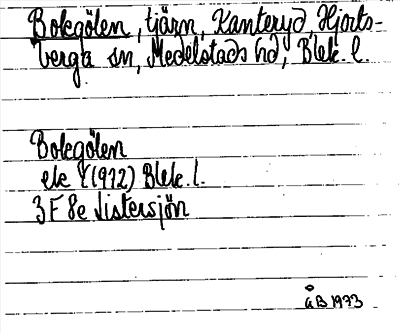 Bolegölen, tjärn, Kanteryd, Hjorts-
berga sn, Medelstads hd, Blek. l.
Bolegölen
ek Y (1972) Blek. l.
3F 8e Listersjön
ÅB 1973